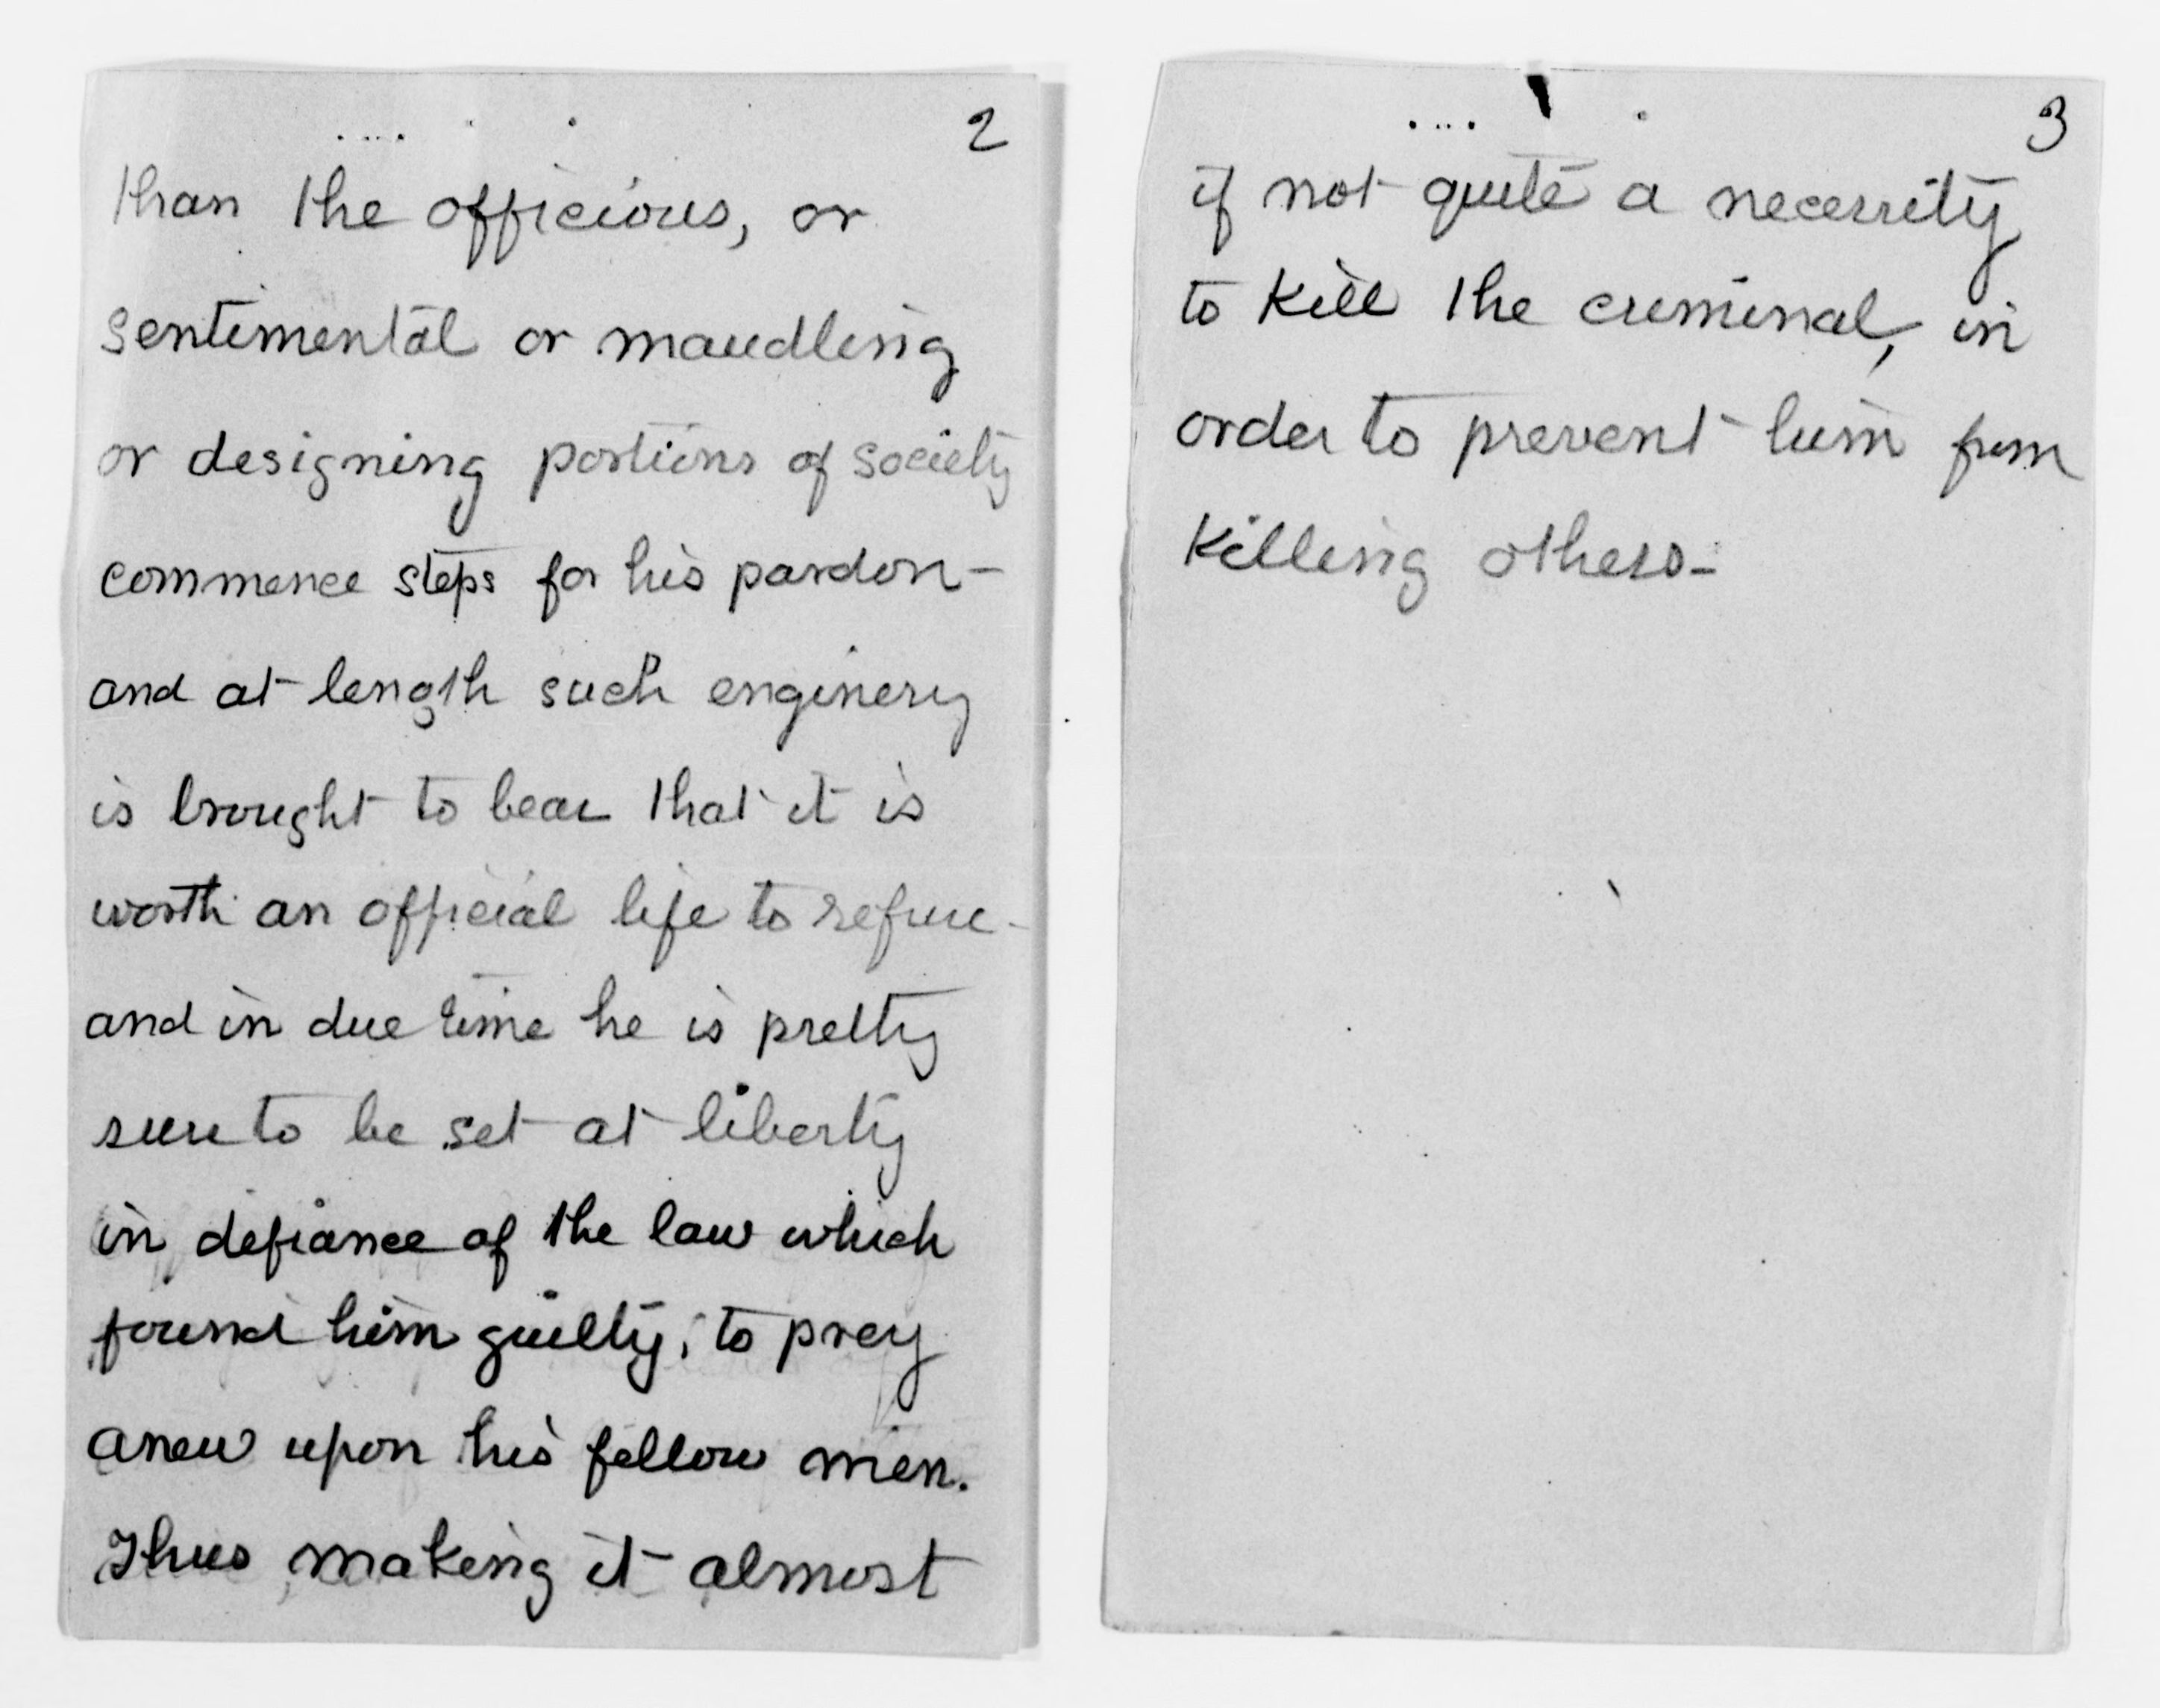 2
than the officious, or
sentimental or maudling
or designing portions of society
commence steps for his pardon -
and at length such enginery
is brought to bear that it is
worth an official life to refuse -
and in due time he is pretty
sure to be set at liberty
in defiance of the law which
found him guilty, to prey
anew upon his fellow men.
Thus making it almost
3
if not quite a necessity
to kill the criminal, in
order to prevent him from
killing others -